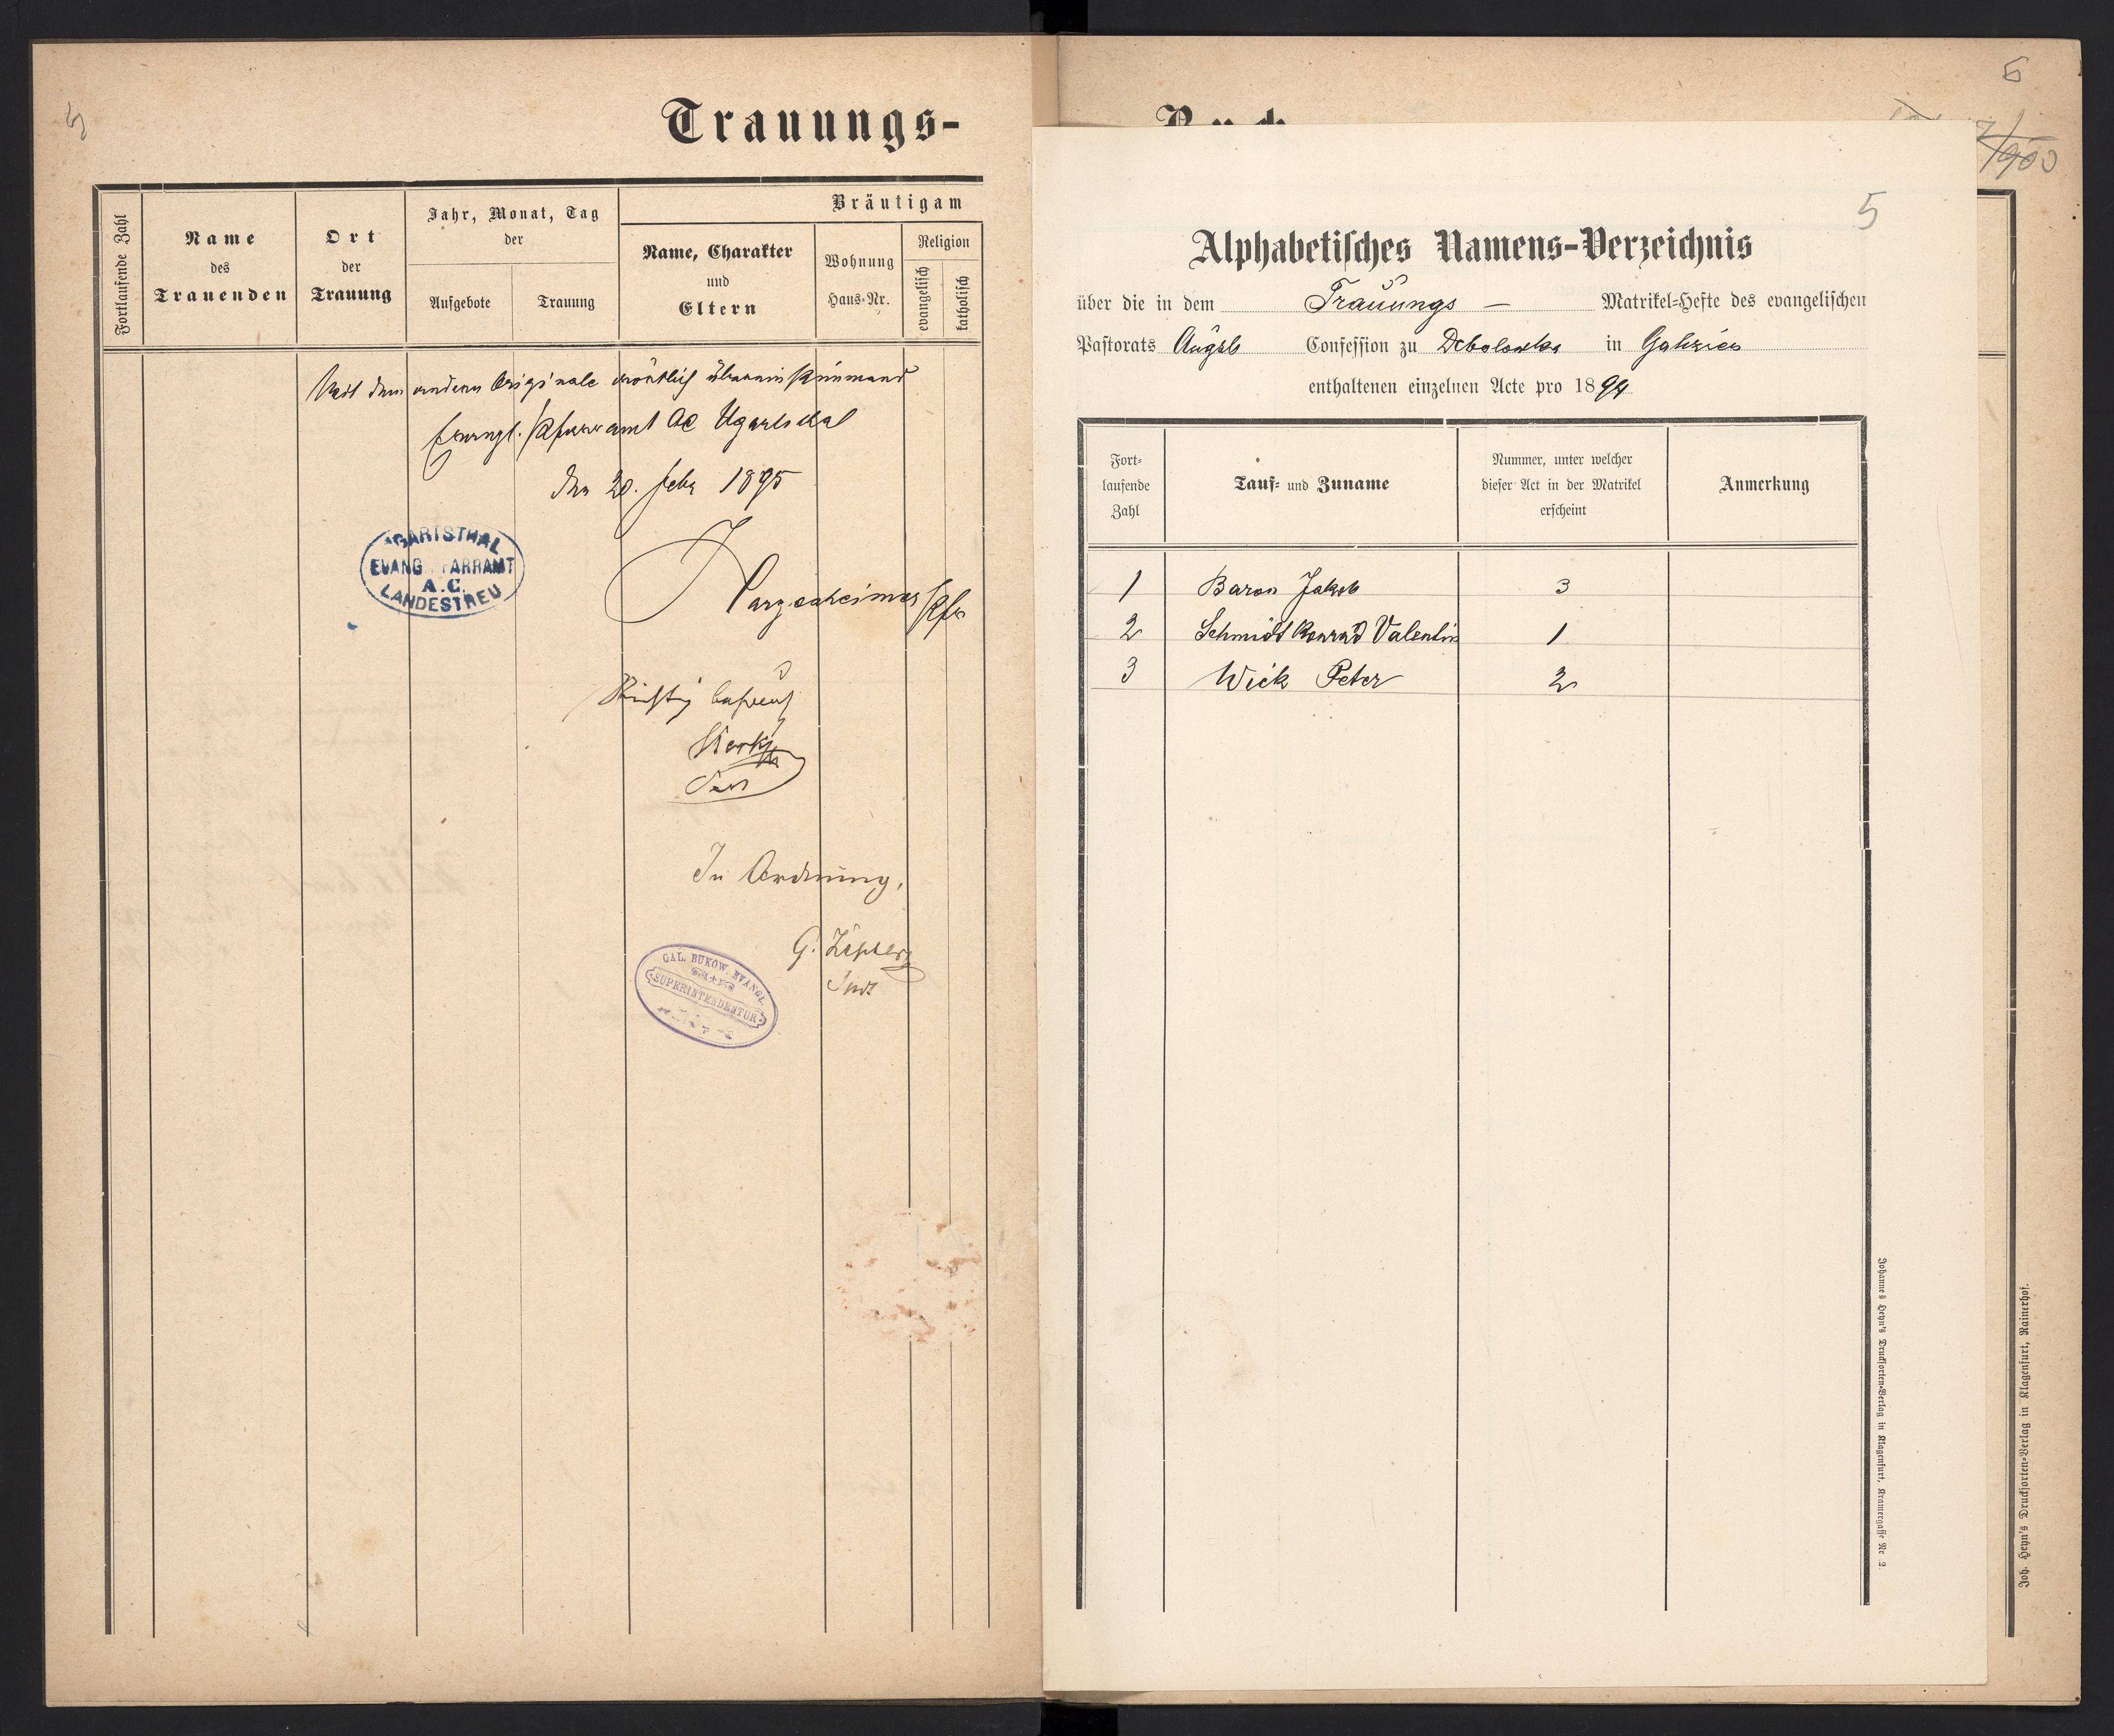 5
Trauungs-
Fortlaufende Zahl
Name
des
Trauenden
Ort
der
Trauung
Jahr, Monat, Tag
der
Aufgebote
Trauung
Bräutigam
Name, Charakter
und
Eltern
Wohnung
Haus-Nr.
Religion
evangelisch
katholisch
Mit dem andern Originale wörtlich übereinstimmend
Evangl. Pfarramt AC Ugartsthal
den 20. Febr 1895
GARTSTHAL
EVANG. PFARRAMT
A.C.
LANDESTREU
Pfr
Richtig befund
Sen
In Ordnung,
G.
Supt
GAL. BUKOW. EVANGL.
SUPERINTENDENTUR
6
Buch
/900
5
Alphabetisches Namens-Verzeichnis
über die in dem Trauungs — Matrikel-Hefte des evangelischen
Pastorats Augsb Confession zu Debolowka in Galizien
enthaltenen einzelnen Acte pro 1894
Fort-
laufende
Zahl
Tauf- und Zuname
Nummer, unter welcher
dieser Act in der Matrikel
erscheint
Anmerkung
1 Baron Jakob 3
2 Schmidt Konrad Valentin 1
3 Wick Peter 2
Johannes Heyn's Drucksorten-Verlag in Klagenfurt, Kramergasse Nr. 2.
Joh. Heyn's Drucksorten-Verlag in Klagenfurt, Rainerhof.